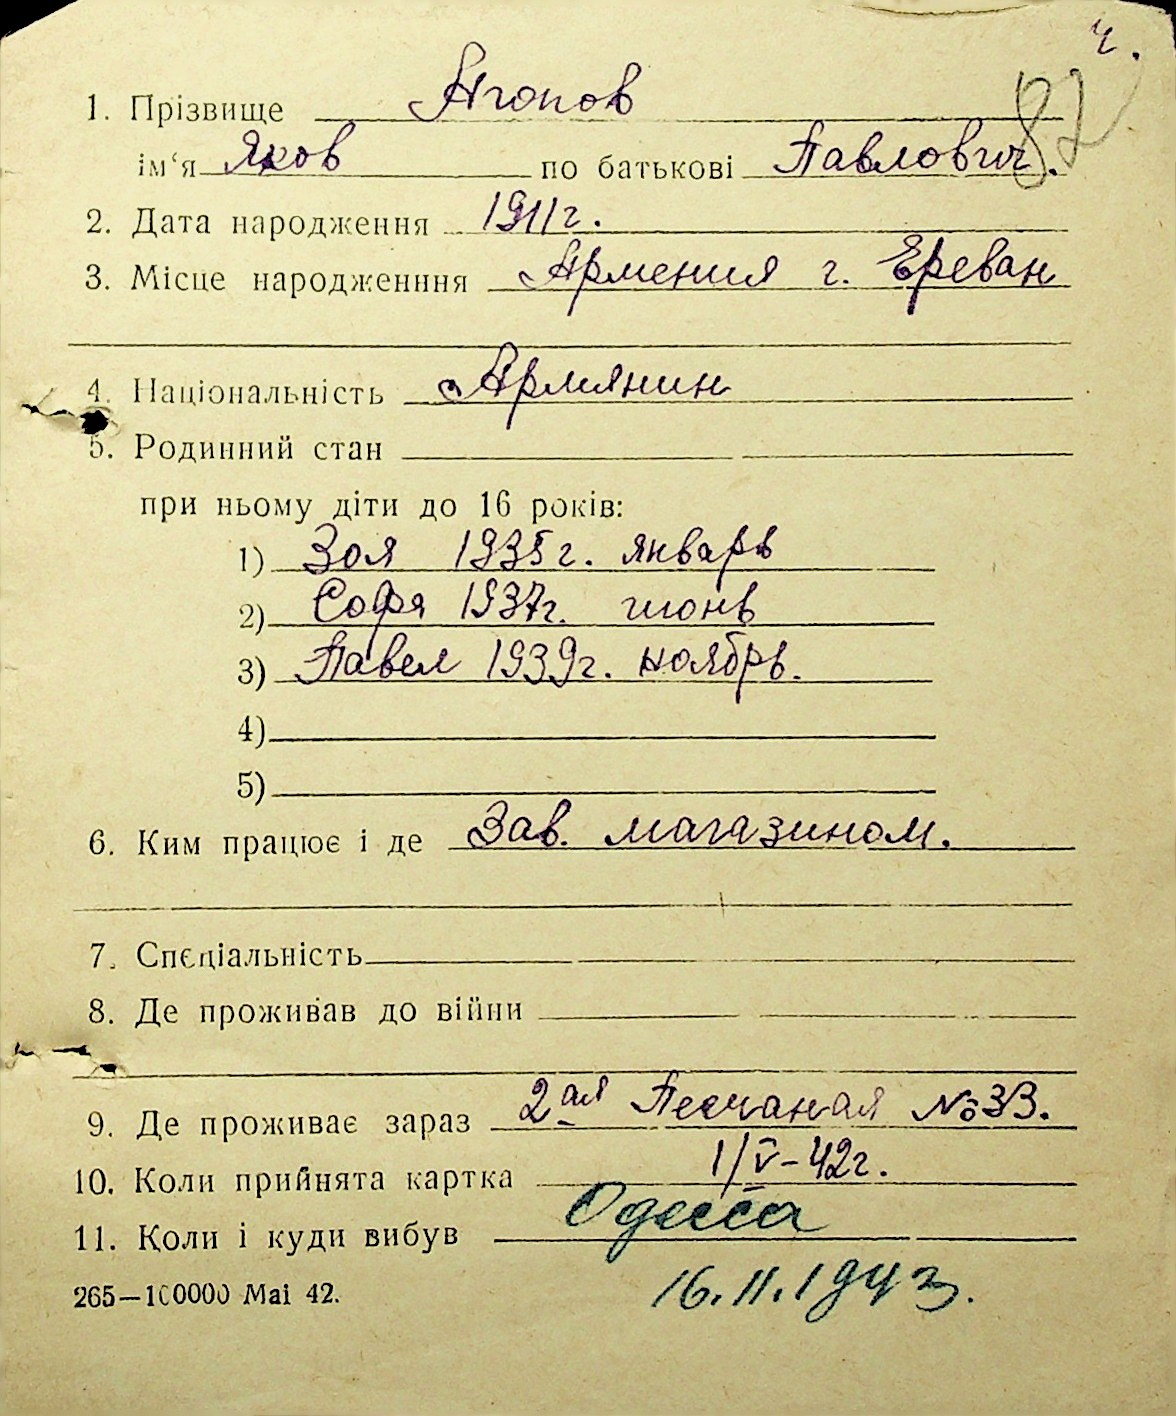 ч.
82
1. Прізвище Агопов
ім‘я Яков по батькові Павлович.
2. Дата народження 1911г.
3. Місце народженння Армения г. Ереван
4. Національність Армянин
5. Родинний стан
при ньому діти до 16 років:
1) Зоя 1935г. январь
2) Софя 1937г. июнь
3) Павел 1939г. ноябрь.
4)
5)
6. Ким працює і де Зав. магазином.
7. Спеціальність
8. Де проживав до війни
9. Де проживає зараз 2ая Песчаная №33.
10. Коли прийнята картка 1/V-42г.
11. Коли і куди вибув Одесса
265—100000 Маі 42. 16.11.1943.